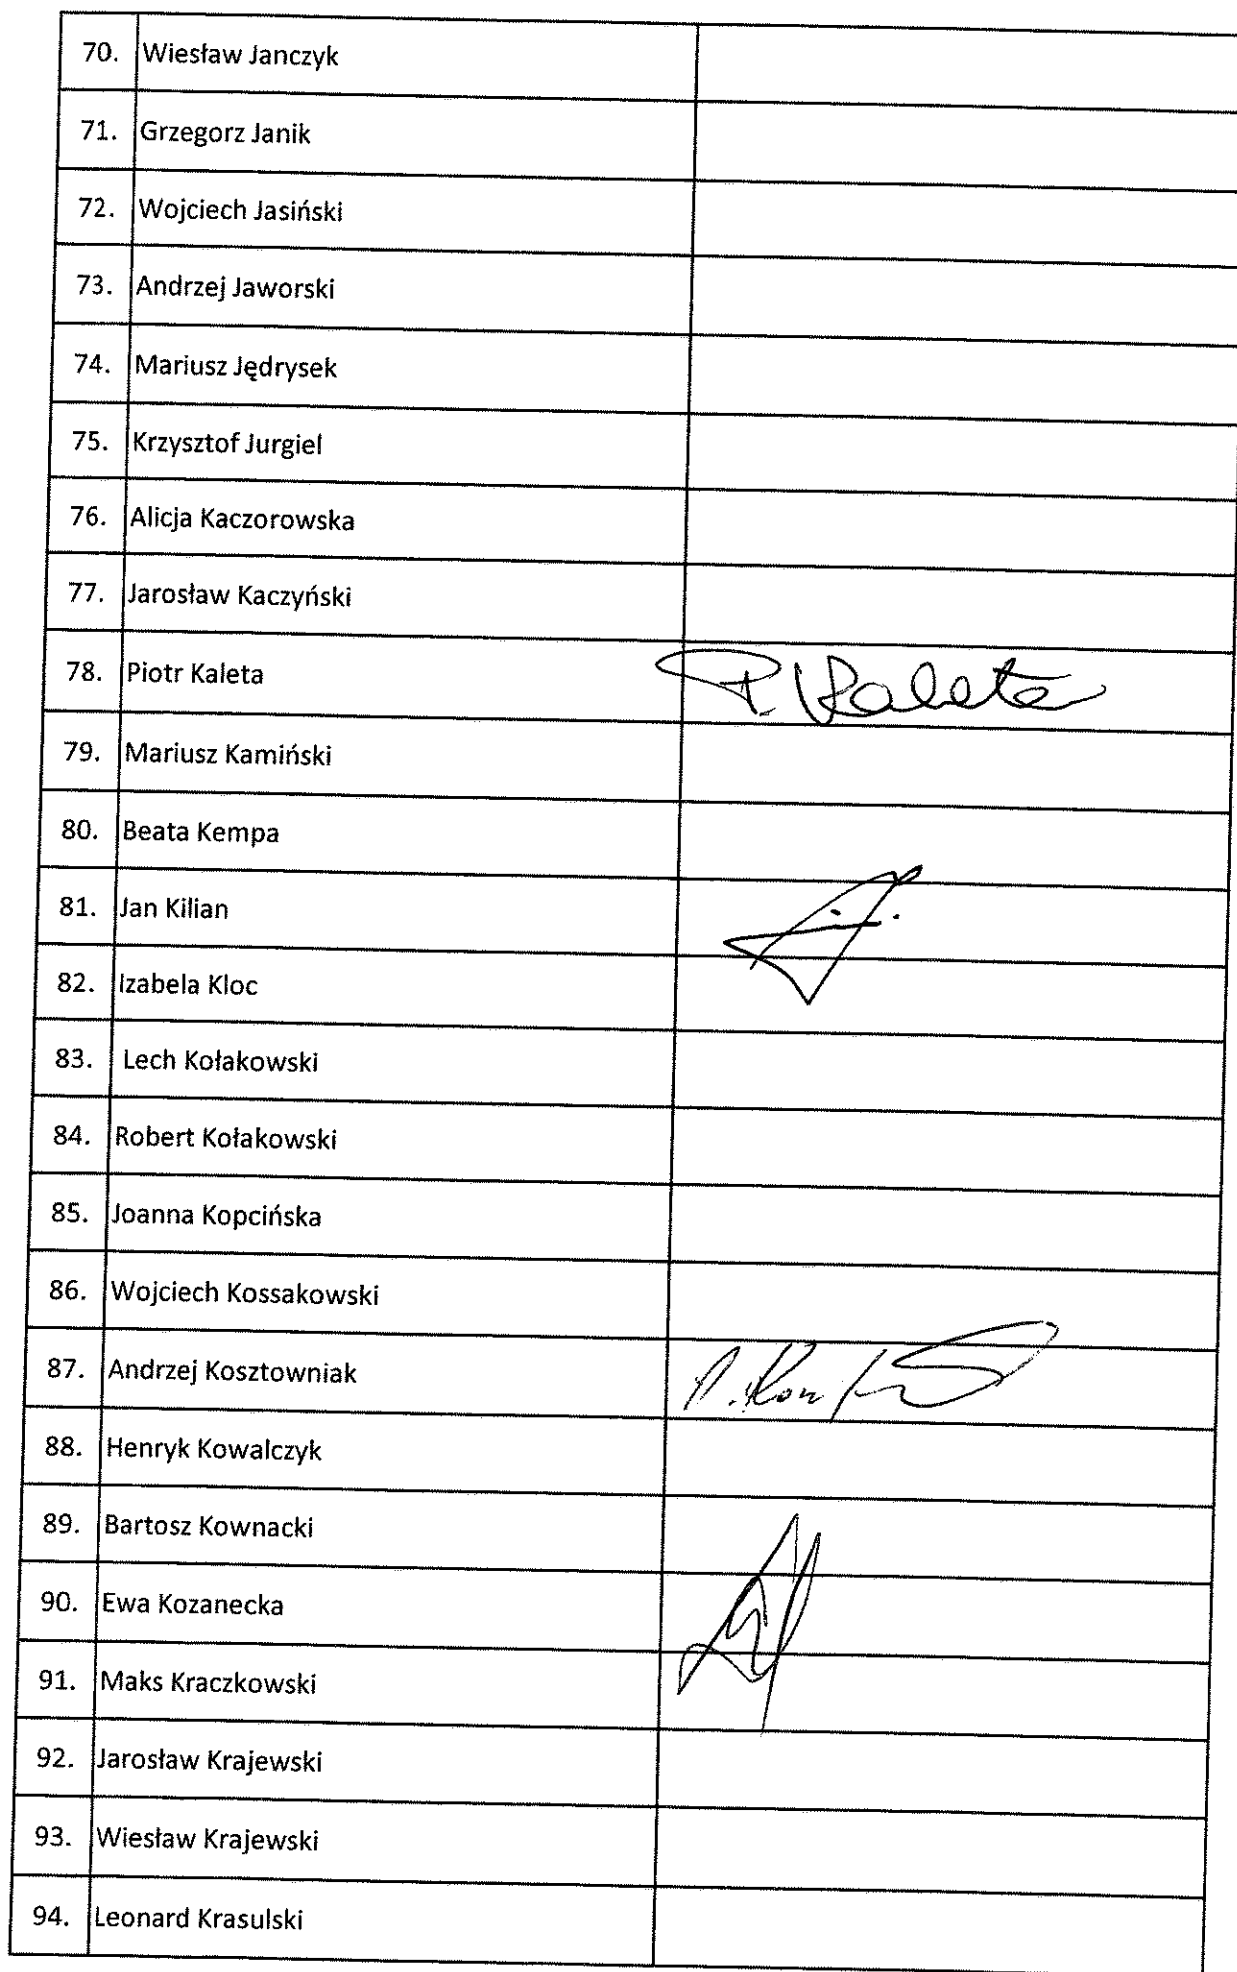 70. Wiesław Janczyk
71. Grzegorz Janik
72. Wojciech Jasiński
73. Andrzej Jaworski
74. Mariusz Jędrysek
75. Krzysztof Jurgiel
76. Alicja Kaczorowska
77. Jarosław Kaczyński
78. Piotr Kaleta P. Kaleta
79. Mariusz Kamiński
80. Beata Kempa
81. Jan Kilian
82. Izabela Kloc
83. Lech Kołakowski
84. Robert Kołakowski
85. Joanna Kopcińska
86. Wojciech Kossakowski
87. Andrzej Kosztowniak
88. Henryk Kowalczyk
89. Bartosz Kownacki
90. Ewa Kozanecka
91. Maks Kraczkowski
92. Jarosław Krajewski
93. Wiesław Krajewski
94. Leonard Krasulski